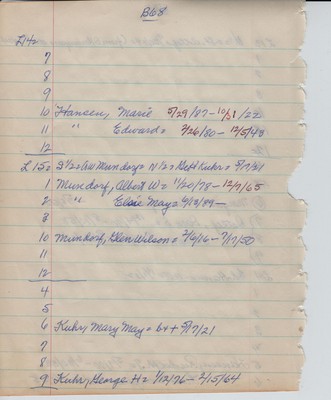 B68.
L14=
7
8
9
10 Hansen, Marie 5/29/87-10/31/22
11 " Edward= 2/26/80-12/5/43
12
L15= S½=AW Mundorf= N½=GeH Kuhr= 5/7/21
1 Mundorf, Albert W= 11/20/78-12/7/65
2 " Elsie May= 6/13/89-
3
10 Mundorf, Glen Wilson= 2/6/16-7/17/50
11
12
4
5
6 Kuhr, Mary May= b++ 5/17/21
7
8
9 Kuhr, George H= 1/12/76-2/15/64